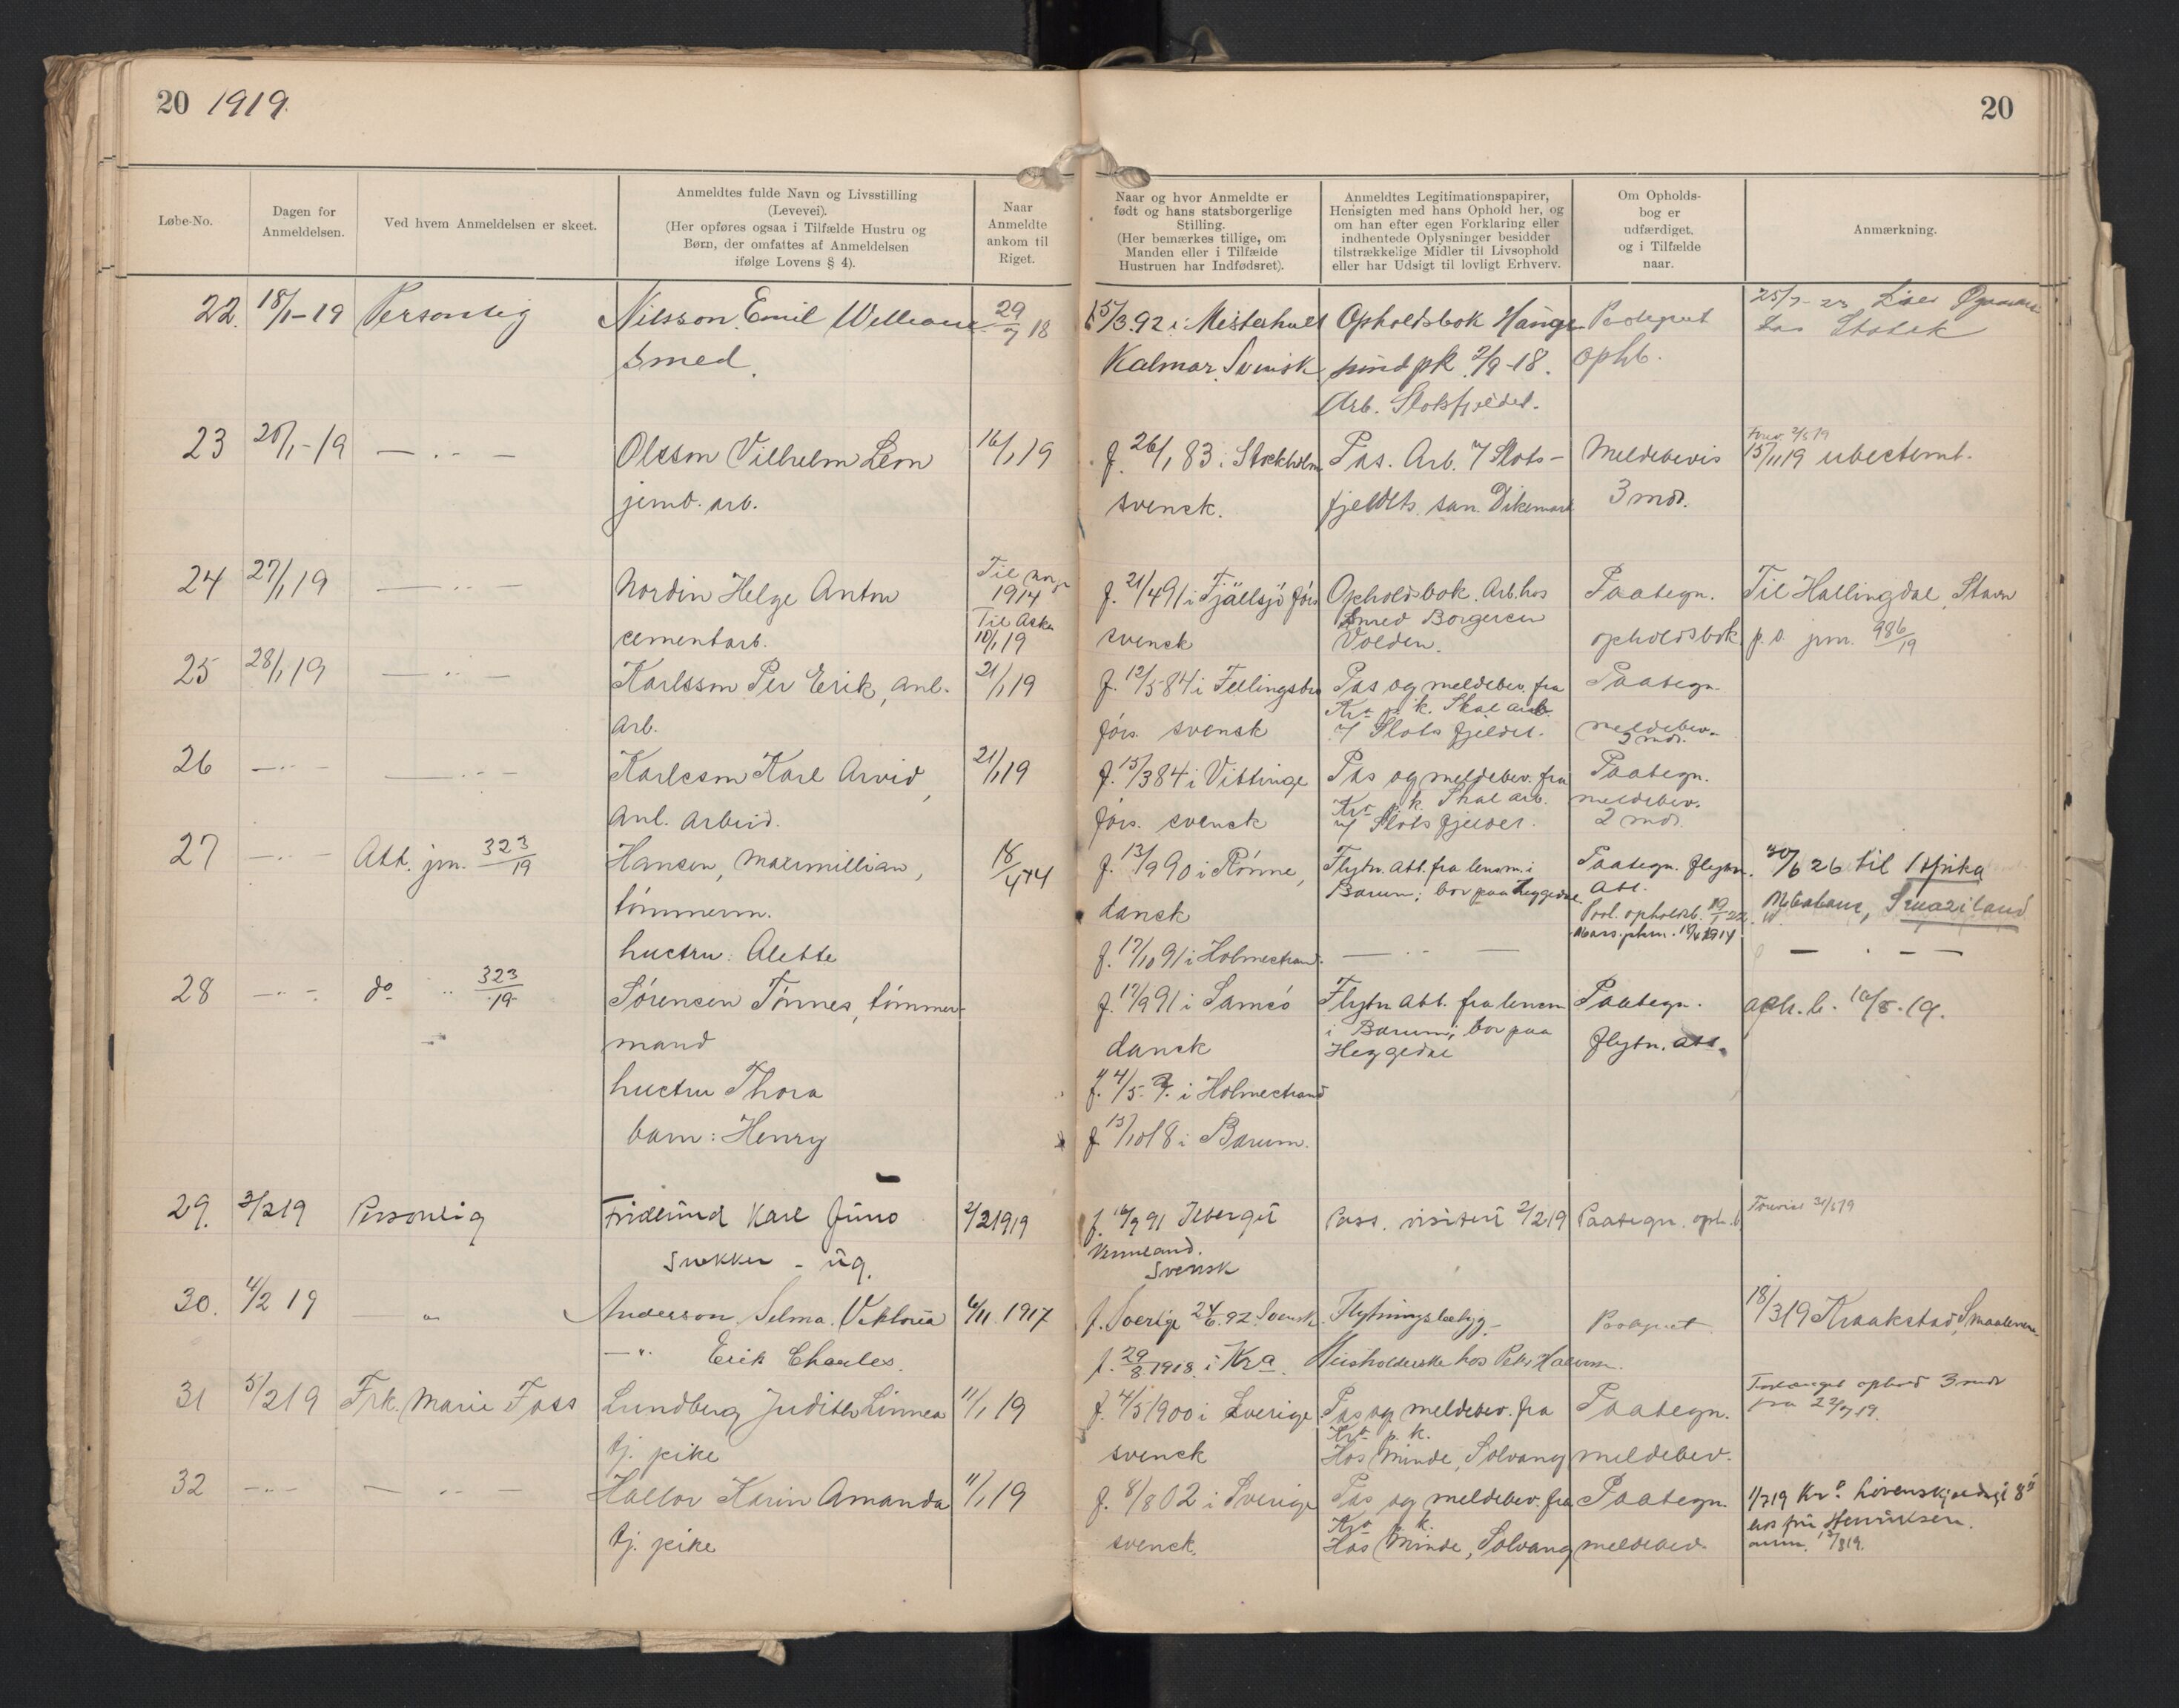 20 1919.
20
Løbe-No.
Dagen for
Anmeldelsen.
Ved hvem Anmeldelsen er skeet.
Anmeldtes fulde Navn og Livsstilling
(Levevei).
(Her opføres ogsaa i Tilfælde Hustru og
Børn, der omfattes af Anmeldelsen
ifølge Lovens § 4).
Naar
Anmeldte
ankom til
Riget.
Naar og hvor Anmeldte er
født og hans statsborgerlige
Stilling.
(Her bemærkes tillige, om
Manden eller i Tilfælde
Hustruen har Indfødsret).
Anmeldtes Legitimationspapirer,
Hensigten med hans Ophold her, og
om han efter egen Forklaring eller
indhentede Oplysninger besidder
tilstrækkelige Midler til Livsophold
eller har Udsigt til lovligt Erhverv.
Om Opholds-
bog er
udfærdiget,
og i Tilfælde
naar.
Anmærkning.
22. 18/1-19 Personlig Nilsson Emil 29/7 18 15/3.92 i Misterhult Opholdsbok 25/7-23
smed. Kalmar. Svensk pk. 2/9-18. ophb.
Arb. Slotsfjeldet.
23 20/1-19 — · · — Olsson Vilhelm Leon 16/1 19 f. 26/1 83 i Stockholm Pas. Arb. Slots- Meldebevis 15/11 19 ubestemt.
jernb. arb. svensk. fjeldets san. Dikemark 3 mdr.
24 27/1 19 — · · — Nordin Helge Anton Til Norge 1914 f. 21/4 91 i Fjällsjö förs Opholdsbok. Arb. hos Paategn. Til Hallingdal,
cementarb. Til Asker 10/1 19 svensk Smed Borgersen Volden. opholdsbok. p. s. jrn. 986/19
25 28/1 19 — · · — Karlsson Per Erik, anl. 21/1 19 f. 12/5 84 i Fellingsbro Pas og meldebev. fra Paategn.
arb. förs. svensk Kra p. k. Skal arb. Slotsfjeldet. meldebev. 2 mdr.
26 — · · — — · · — Karlsson Karl Arvid, 21/1 19 f. 15/3 84 i Vittinge Pas og meldebev. fra Paategn.
anl. arbeid. förs. svensk Kra p. k. Skal arb. Slotsfjeldet. meldebev. 2 mdr.
27 — · · — Att. jrn. 323/19 Hansen, Maximillian, 18/4 14 f. 13/9 90 i Rønne, Flytn. att. fra lensm. i Paategn. flytn. 30/6 26 til Afrika
tömmerm. dansk Barum; bor paa Heggedal. att. Mbabane, Swaziland
Pol. opholdsb. 19/1 22
hustru: Alette f. 17/10 91 i Holmestrand. — · · — — · —
28 — · · — do " 323/19 Sörensen Tönnes, tömmer- f. 17/9 91 i Samsö Flytn att. fra lensm Paategn. oph. b. 10/8-19.
mand dansk i Barum; bor paa Heggedal flytn. att.
hustru Thora i Holmestrand
barn: Henry f. 15/10 18 i Barum.
29. 3/2 19 Personlig Fridlund Karl Juno 2/2 1919 f. 16/9 91 Pass. visitert 2/2 19 Paategn. oph. b
Snekker - ug. Vermland. Svensk
30. 4/2 19 — " Anderson Selma. Viktoria 6/11. 1917 f. Sverige 24/6. 92. Svensk. Flytningsbetyg. 18/3 19 Kraakstad, Smaalenene
— " — Erik Charles. f. 29/8 1918. i Kra. Husholderske hos
31 5/2 19 Frk. Marie Foss Lundberg Judith Linnea 11/1 19 f. 4/5 1900 i Sverige Pas og meldebev. fra Paategn. Forlænget ophold 3 mdr
tj. pike svensk Kra p. k. Hos Minde, Solvang meldebev.
32 — · · — — · · — Hallor Karin Amanda 11/1 19 f. 8/8 02 i Sverige Pas og meldebev. fra Paategn. 1/7 19 Kra.
tj. pike svensk. Kra p. k. Hos Minde, Solvang meldebev. hos fru Henriksen.